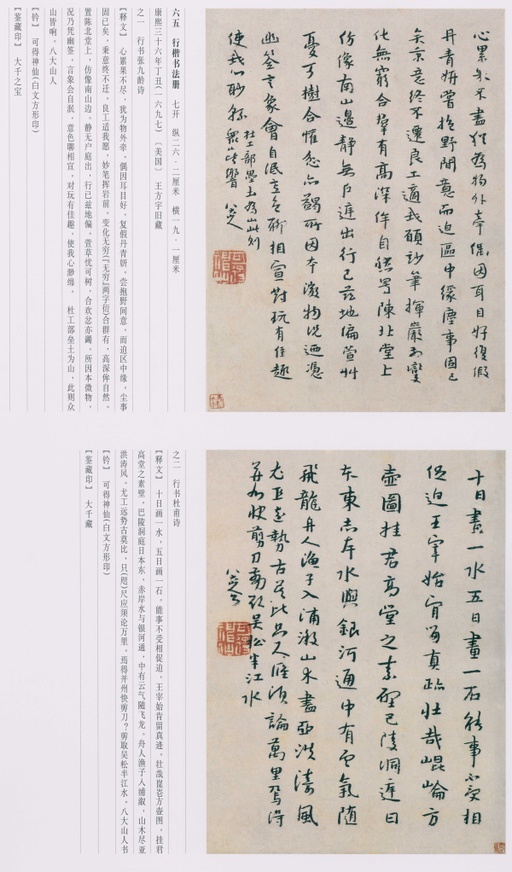 心累累不盡猶為物外牽偶因耳目好復假
丹青妍嘗抱野閒意而迫區中緣塵事固已
矣秉意終不遷良工適我願妙筆揮巖泉變
化無窮合羣有高深侔自然置陳北堂上
仿像南山邊靜無戶庭出行已茲地偏萱艸
憂可樹合懽忿亦蠲所因本微物況迺憑
幽筌言象會自泯意色聊相宣對玩有佳趣
使我心眇緜
杜工部壘土為山此則
眾山皆響
八大山人
六五 行楷书法册 七开 纵二六·二厘米 横一九·一厘米
康熙三十六年丁丑(一六九七) 〔美国〕 王方宇旧藏
之一 行书张九龄诗
【释文】 心累累不尽,犹为物外牵,偶因耳目好,复假丹青妍,尝抱野闲意,而迫区中缘,尘事
固已矣,秉意终不迁,良工适我愿,妙笔挥岩前,变化无穷(『无穷』两字倍)合群有,高深侔自然,
置陈北堂上,仿像南山边,静无户庭出,行已兹地偏,萱草忧可树,合欢忿亦蠲,所因本微物,
况乃凭幽筌,言象会自泯,意色聊相宣,对玩有佳趣,使我心渺绵, 杜工部垒土为山,此则众
山皆响,八大山人
【钤】 可得神仙(白文方形印)
【鉴藏印】 大千之宝
十日畫一水五日畫一石能事不受相
促迫王宰始肯留真跡壯哉崐崘方
壺圖挂君高堂之素壁巴陵洞庭日
本東赤岸水與銀河通中有雲氣隨
飛龍舟人漁子入浦漵山木盡亞洪濤風
尤工遠勢古莫比咫尺應須論萬里焉得
并州快剪刀剪取吳松半江水
八大山人
之二 行书杜甫诗
【释文】 十日画一水,五日画一石,能事不受相促迫,王宰始肯留真迹,壮哉昆仑方壶图,挂君
高堂之素壁,巴陵洞庭日本东,赤岸水与银河通,中有云气随飞龙,舟人渔子入浦溆,山木尽亚
洪涛风,尤工远势古莫比,只(咫)尺应须论万里,焉得并州快剪刀?剪取吴松半江水,八大山人书
【钤】 可得神仙(白文方形印)
【鉴藏印】 大千藏